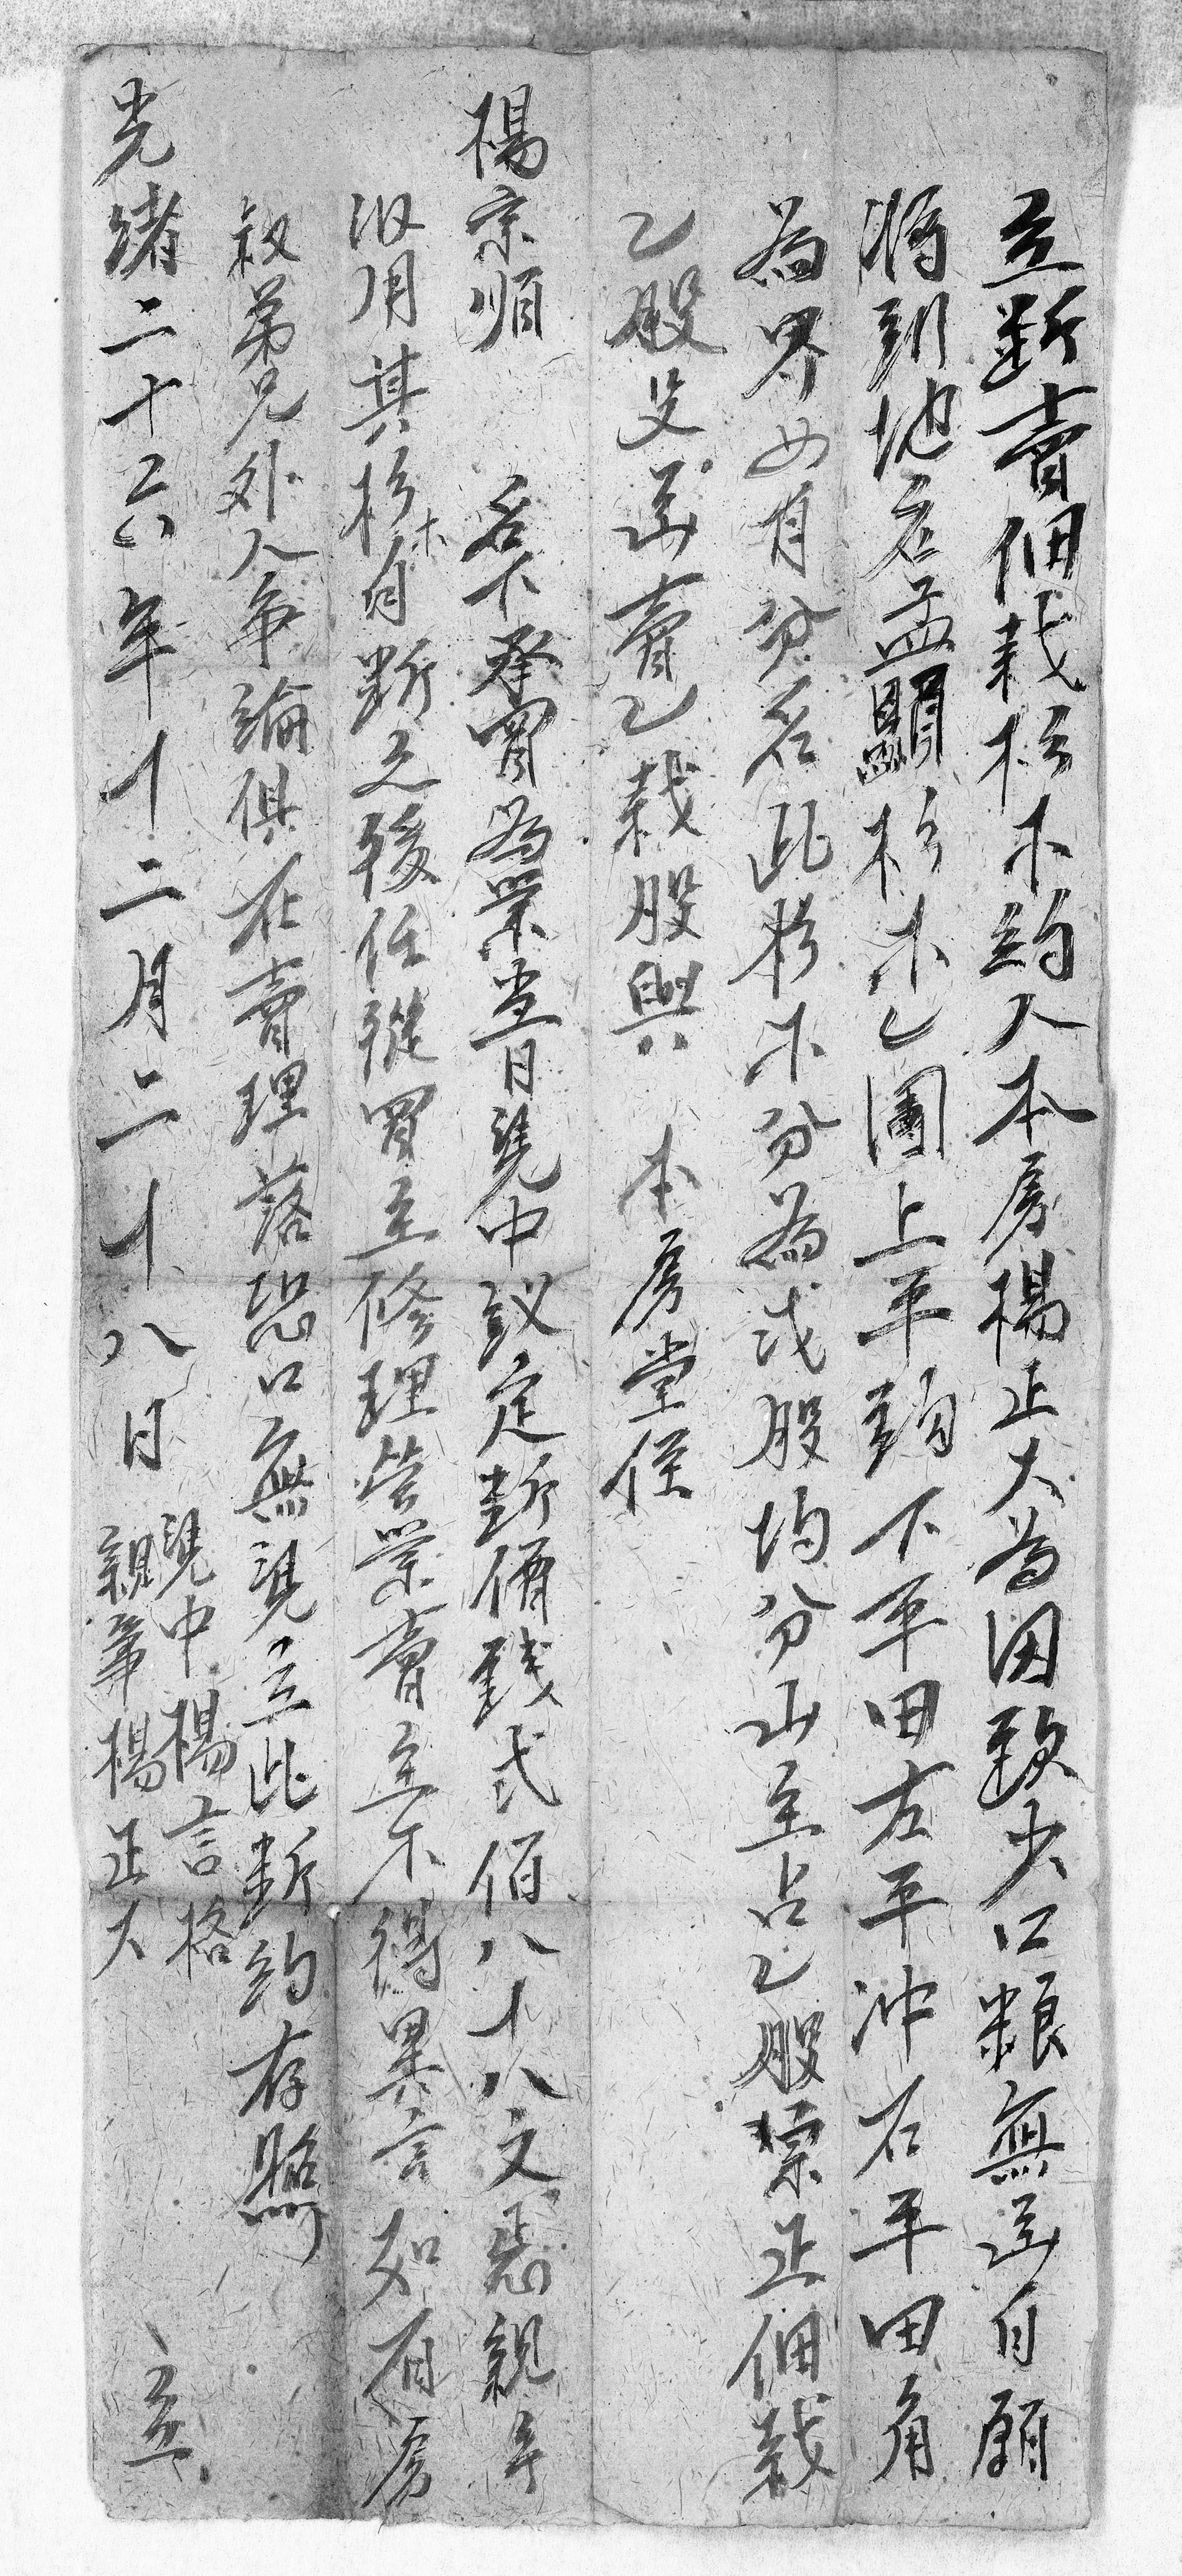 立断賣佃栽杉木約人本房楊正大為因缺少口粮無出自願
將到地名孟顯杉木乙團上平 下平田左平冲右平田角
為界四自分名此杉木分為弍股均分山主占乙股 正佃栽
乙股父出賣乙栽股與 本房堂侄
楊宗順 名下承買為業當日凴中議定断價錢弍佰八十八文 親手
汲用其杉木自断之後任從買主修理管業賣主不得異言如有房
叔弟兄外人争論俱在賣理落恐口無凴立此断約存照
凴中楊言格
親筆楊正大
光緒二十六年十二月二十八日 立